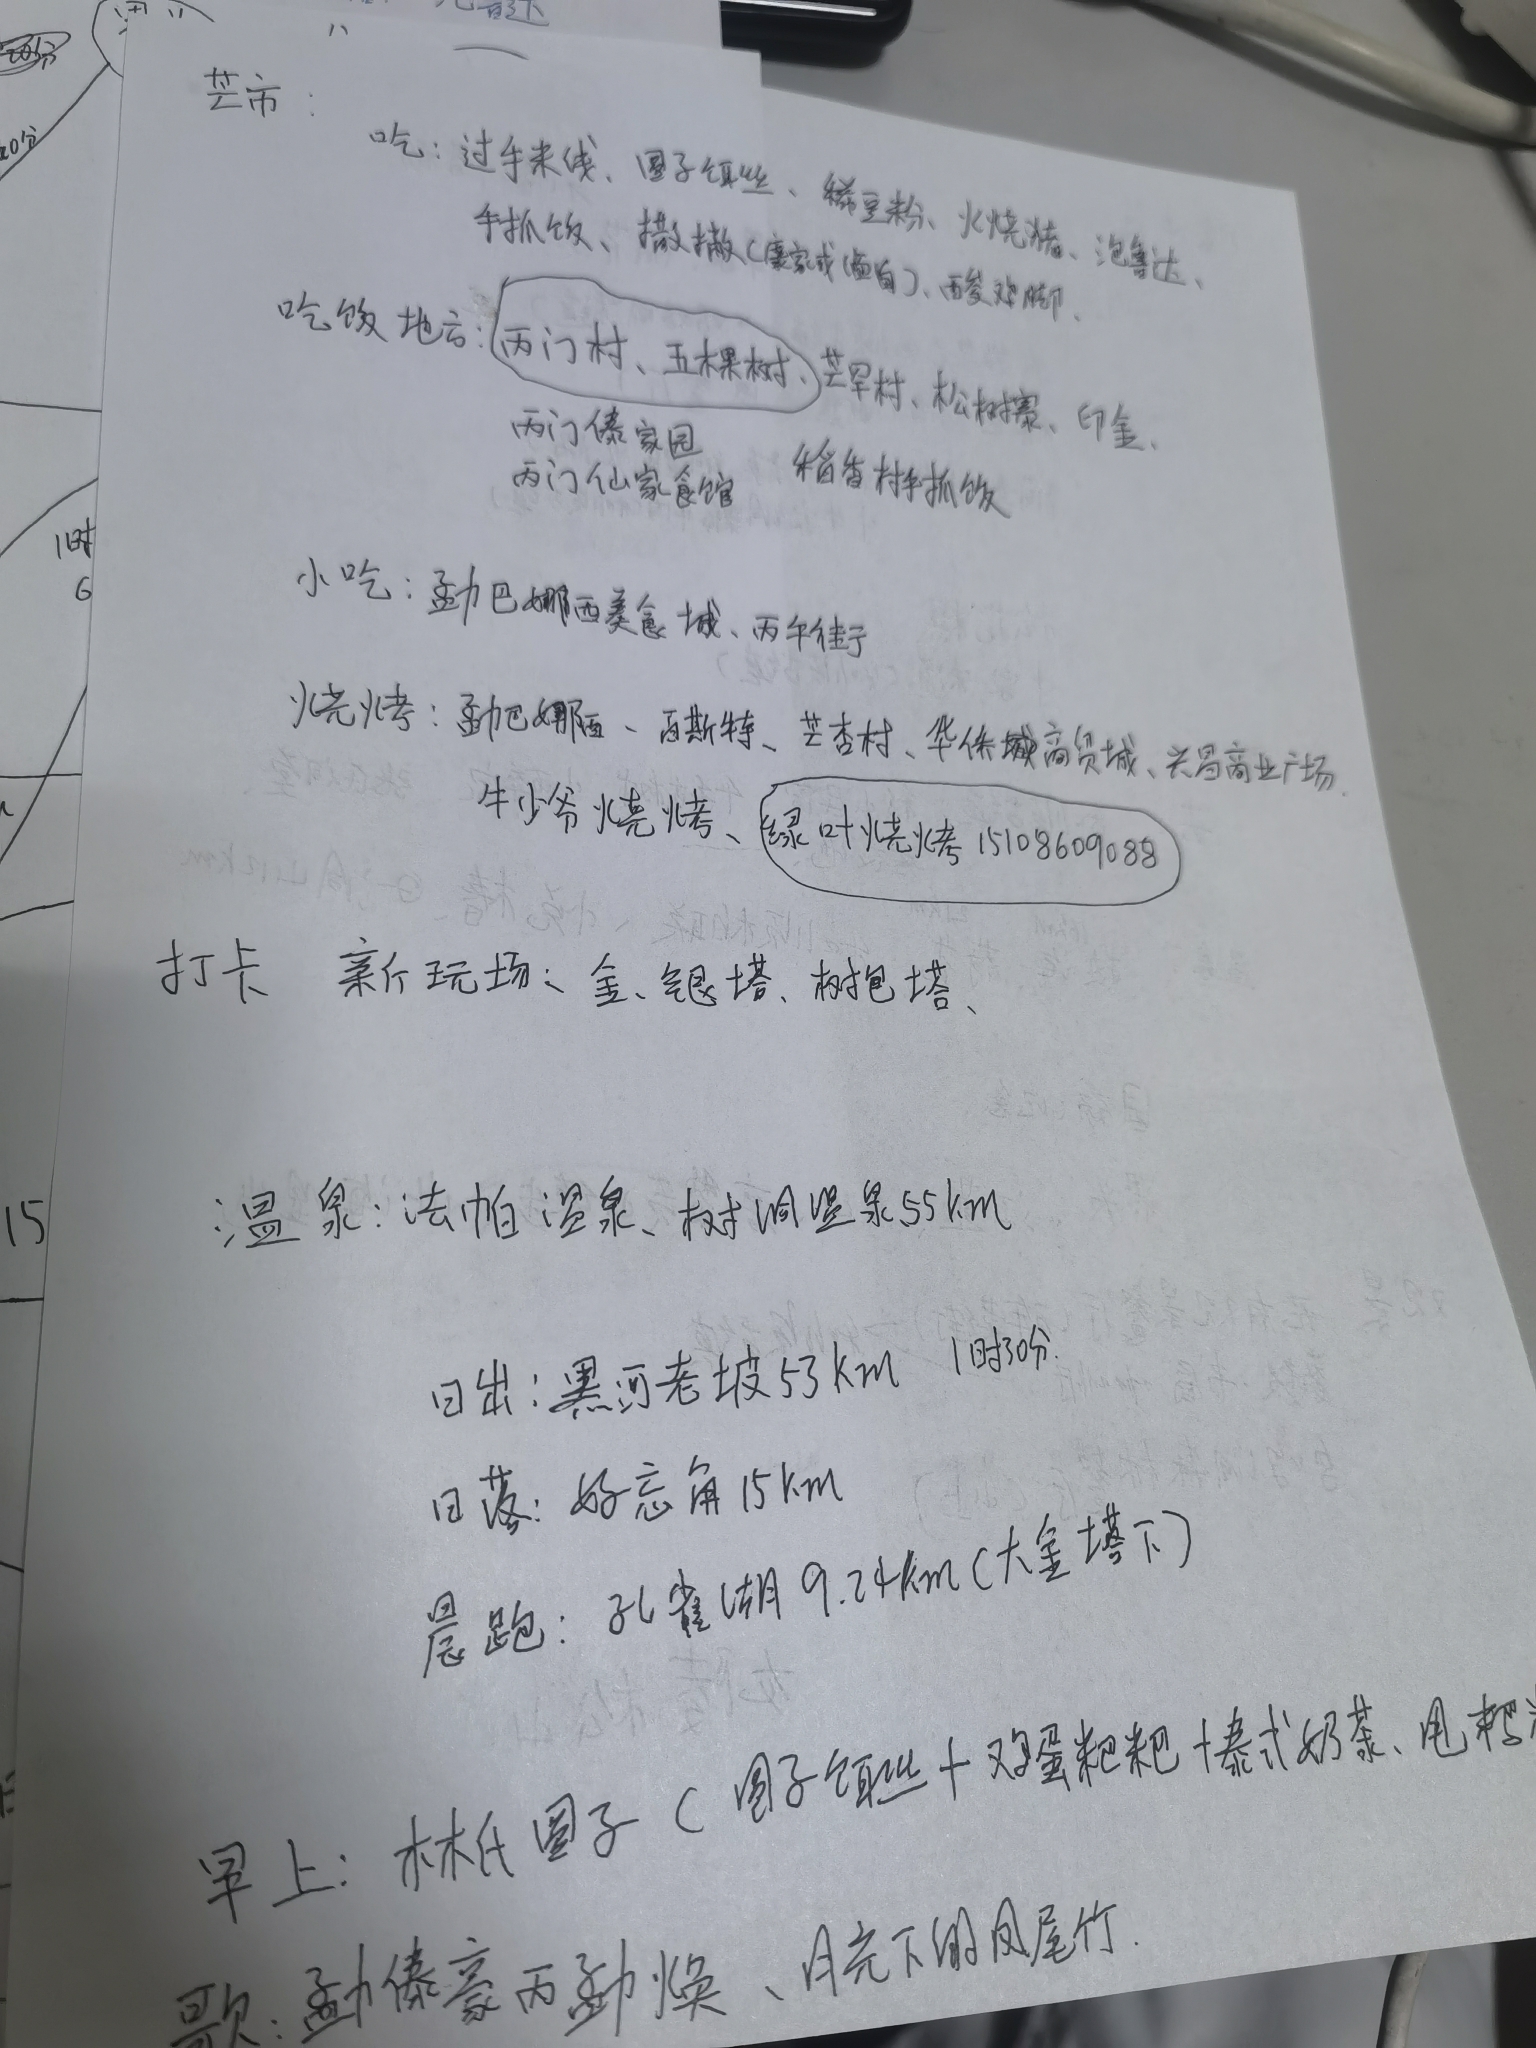 芒市:
吃:过手米线、圆子饵丝、稀豆粉、火烧猪、泡鲁达、
手抓饭、撒撇(廉家或)、酸鸡脚.
吃饭地方:丙门村、五棵树、芒罕村、松树寨、印金、
丙门傣家园
丙门仙家食馆 稻香村手抓饭
小吃:勐巴娜西美食城、丙午街子
烧烤:勐巴娜西、百斯特、芒杏村、华侨城商贸城、兴昌商业广场.
牛少爷烧烤、绿叶烧烤15108609088
打卡 新玩场:金、银塔、树包塔、
温泉:法帕温泉、树洞温泉55km
日出:黑河老坡53km 1时30分.
日落:好忘角15km
晨跑:孔雀湖9.24km(大金塔下)
早上:林氏圆子(圆子饵丝+鸡蛋粑粑+泰式奶茶、甩粑
歌:勐傣豪丙勐焕、月亮下的凤尾竹.
20分
1时
6
15